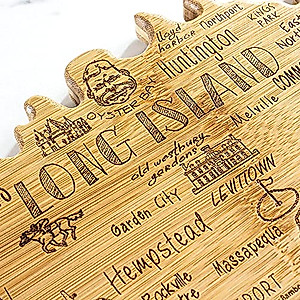 Lloyd
harbor
Northport
KINGS
PARK
Huntington
East
North
OYSTER BAY
LONG ISLAND
Melville
COMM
old westbury
gardens
LEVITTOWN
Garden CITY
Hempstead
Massapequa
Rockville
PORT